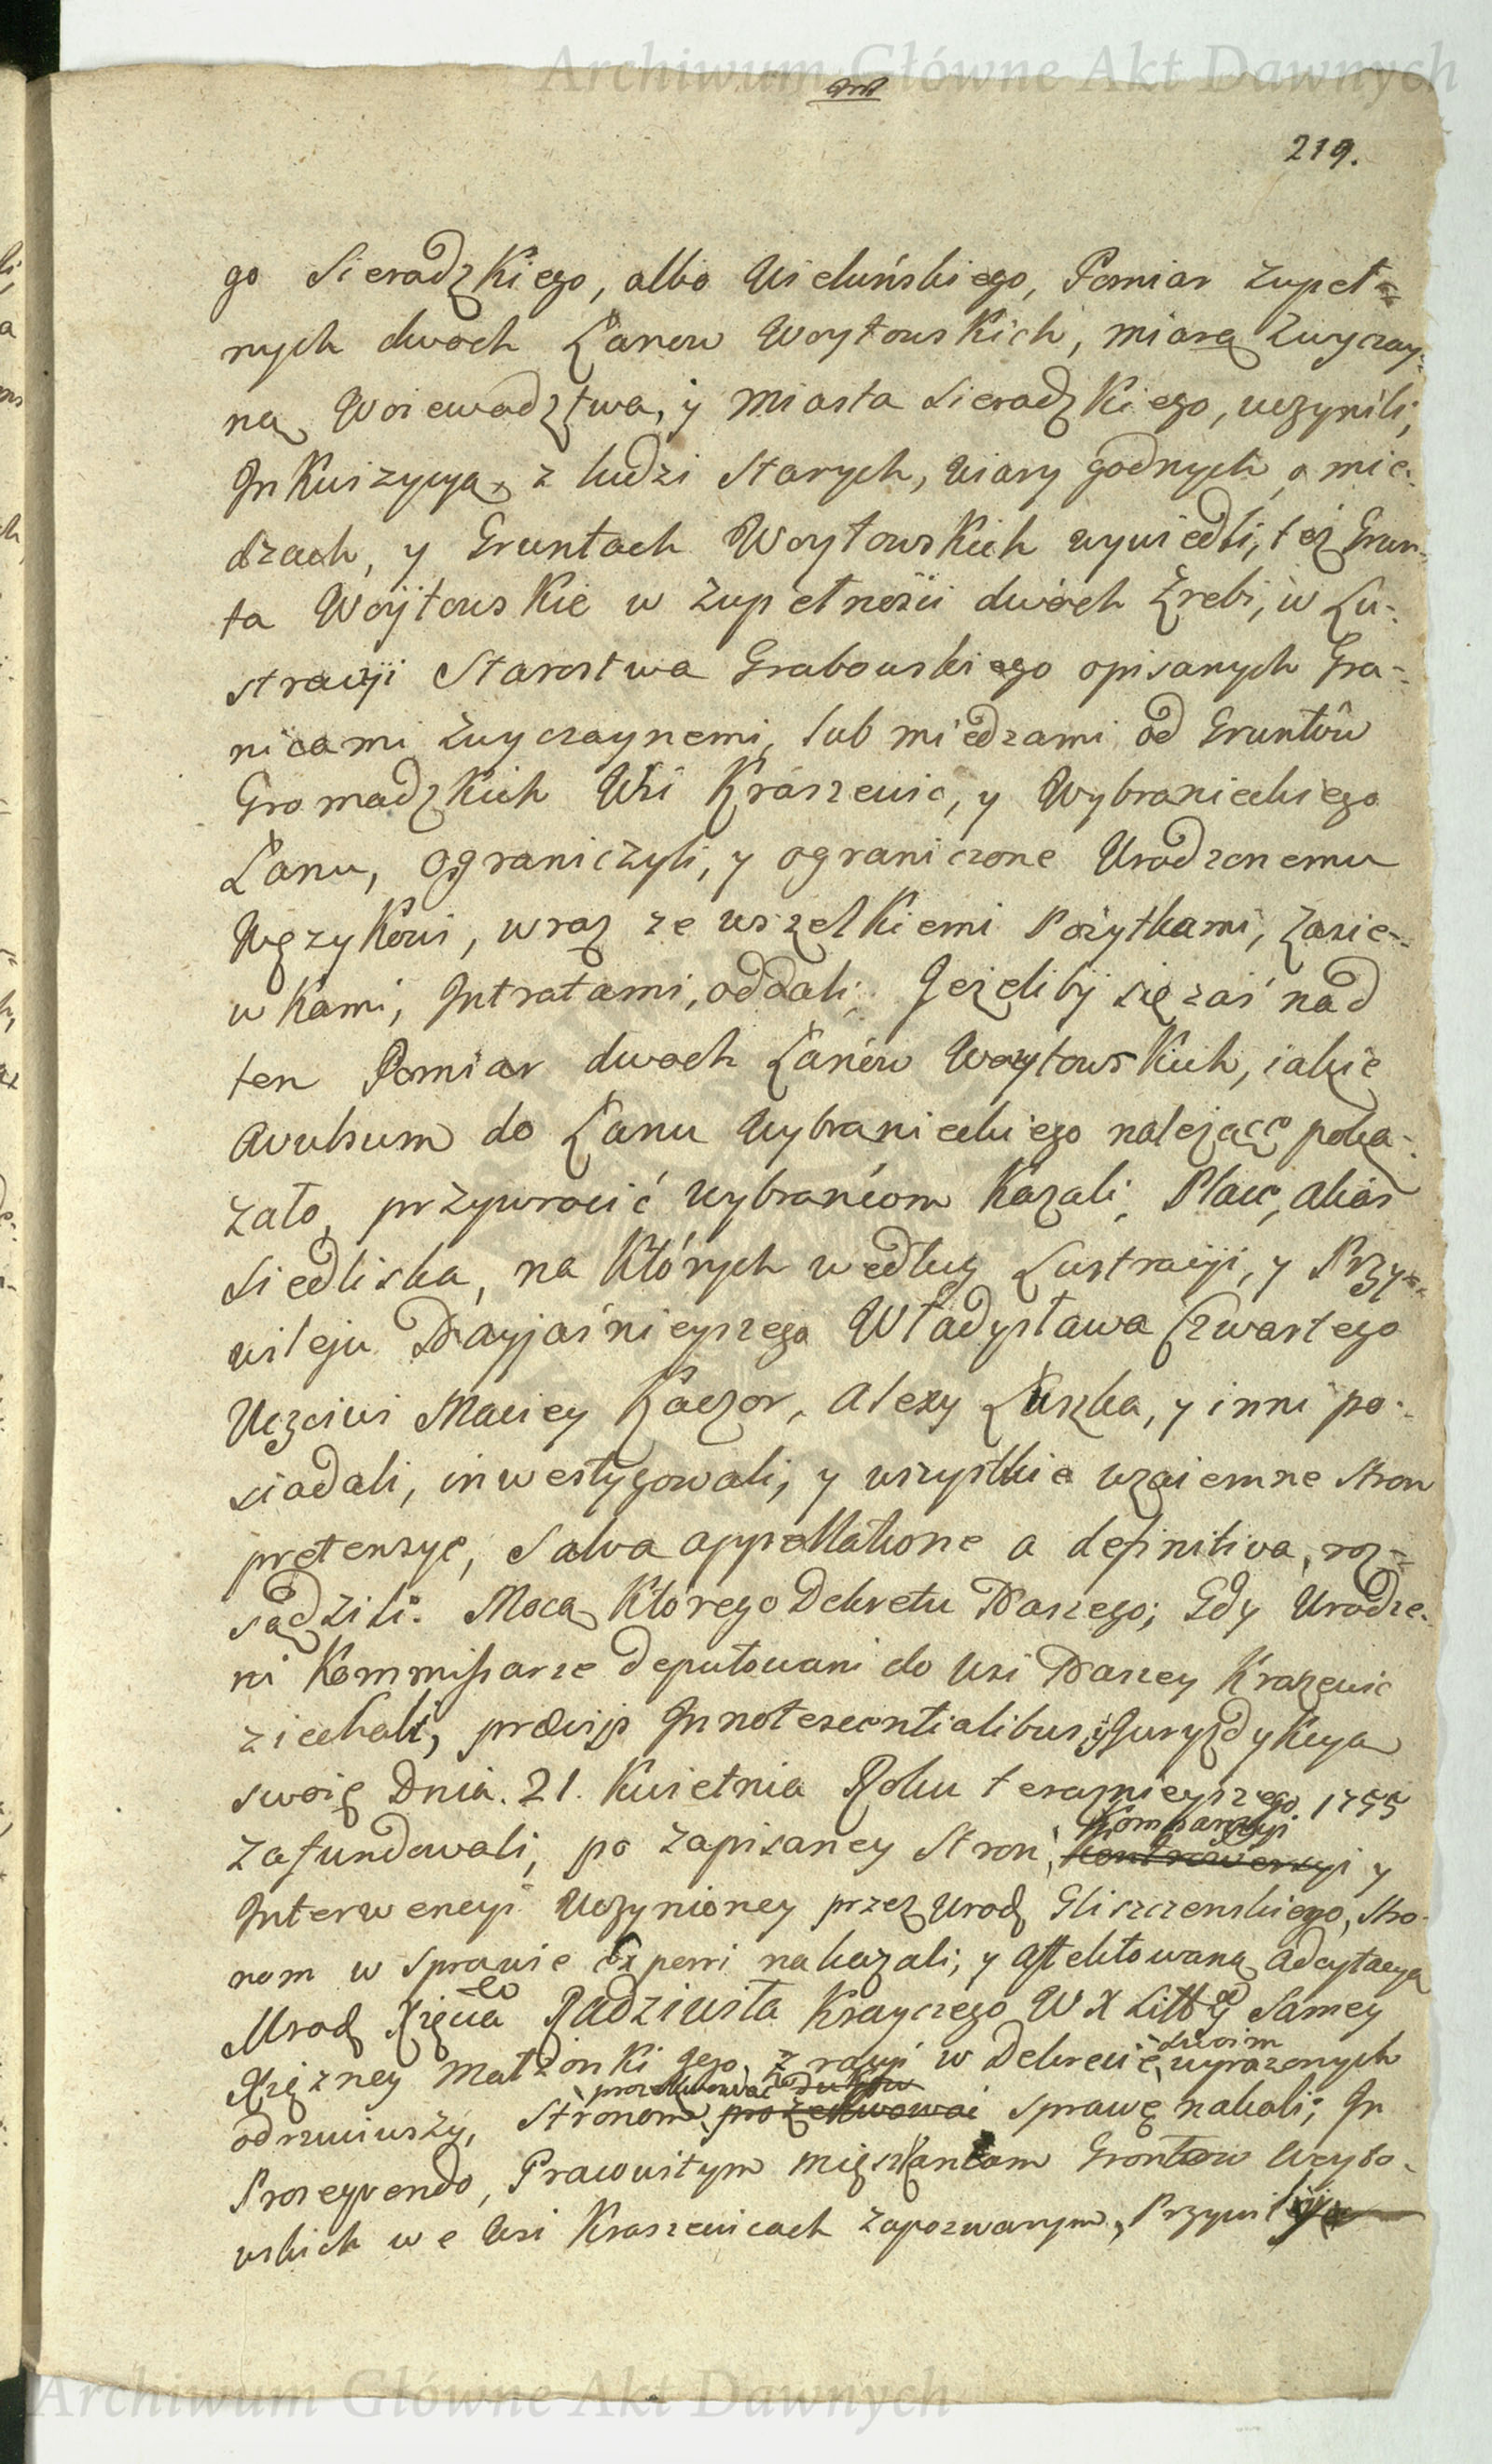 Archiwum Główne Akt Dawnych
219.
go Sieradzkiego, albo Wieluńskiego, Pomiar zupeł=
nych dwoch Łanow Woytowskich, miarą zwyczay-
ną Woiewodztwa, y Miasta Sieradzkiego, uczynili;
Inkwizycyą z ludzi Starych, wiary godnych o mie-
dzach, y Gruntach Woytowskich wywiedli, też Grun-
ta Woytowskie w zupełności dwóch Zrebi, w Lu-
stracyi Starostwa Grabowskiego opisanych Gra-
nicami zwyczaynemi, lub miedzami od Gruntów
Gromadzkich Wsi Kraszewic, y Wybranieckiego
Łanu, ograniczyli, y ograniczone Urodzonemu
Wężykowi, wraz ze wszelkiemi Pożytkami, Zasie-
wkami, Intratami, oddali; Jeżeliby się zaś nad
ten Pomiar dwoch Łanów Woytowskich, iakie
avulsum do Łanu Wybranieckiego należące poka-
zało, przywrocić wybrańcom kazali, Place, alias
Siedliska, na których według Lustracyi, y Przy-
wileju Nayjaśnieyszego Władysława Czwartego
Uczciwi Maciey Kaczor, Alexy Łuszka, y inni po-
siadali, inwestygowali, y wszystkie wzaiemne Stron
pretensye, Salva appellatione a definitiva, roz=
sądzili. Mocą Którego Dekretu Naszego; Gdy Urodze-
ni Kommissarze deputowani do Wsi Naszey Kraszewic
ziechali, præviis Innotescentialibus, Juryzdykcyą
swoię Dnia. 21. Kwietnia Roku teraznieyszego 1755
Komparycyi
zafundowali, po zapisaney Stron, kontrowersyi y
Interwencyi uczynioney przez Urod. Gliszczenskiego, Stro-
nom w sprawie experiri nakazali; y affektowaną adcytacyą
Urod. Xięcia Radziwiła Krayczego W X Litt. y samey
Xiężney Małżonki jego, z racyi w Dekrecie swoim wyrażonych
prosekwować
odrzuciwszy, Stronom prosekwować sprawę nakazali; In
Prosequendo, Prawnitym mięszkańcom Grontow Woyto-
wskich we Wsi Kraszewicach zapozwanym,
Archiwum Główne Akt Dawnych